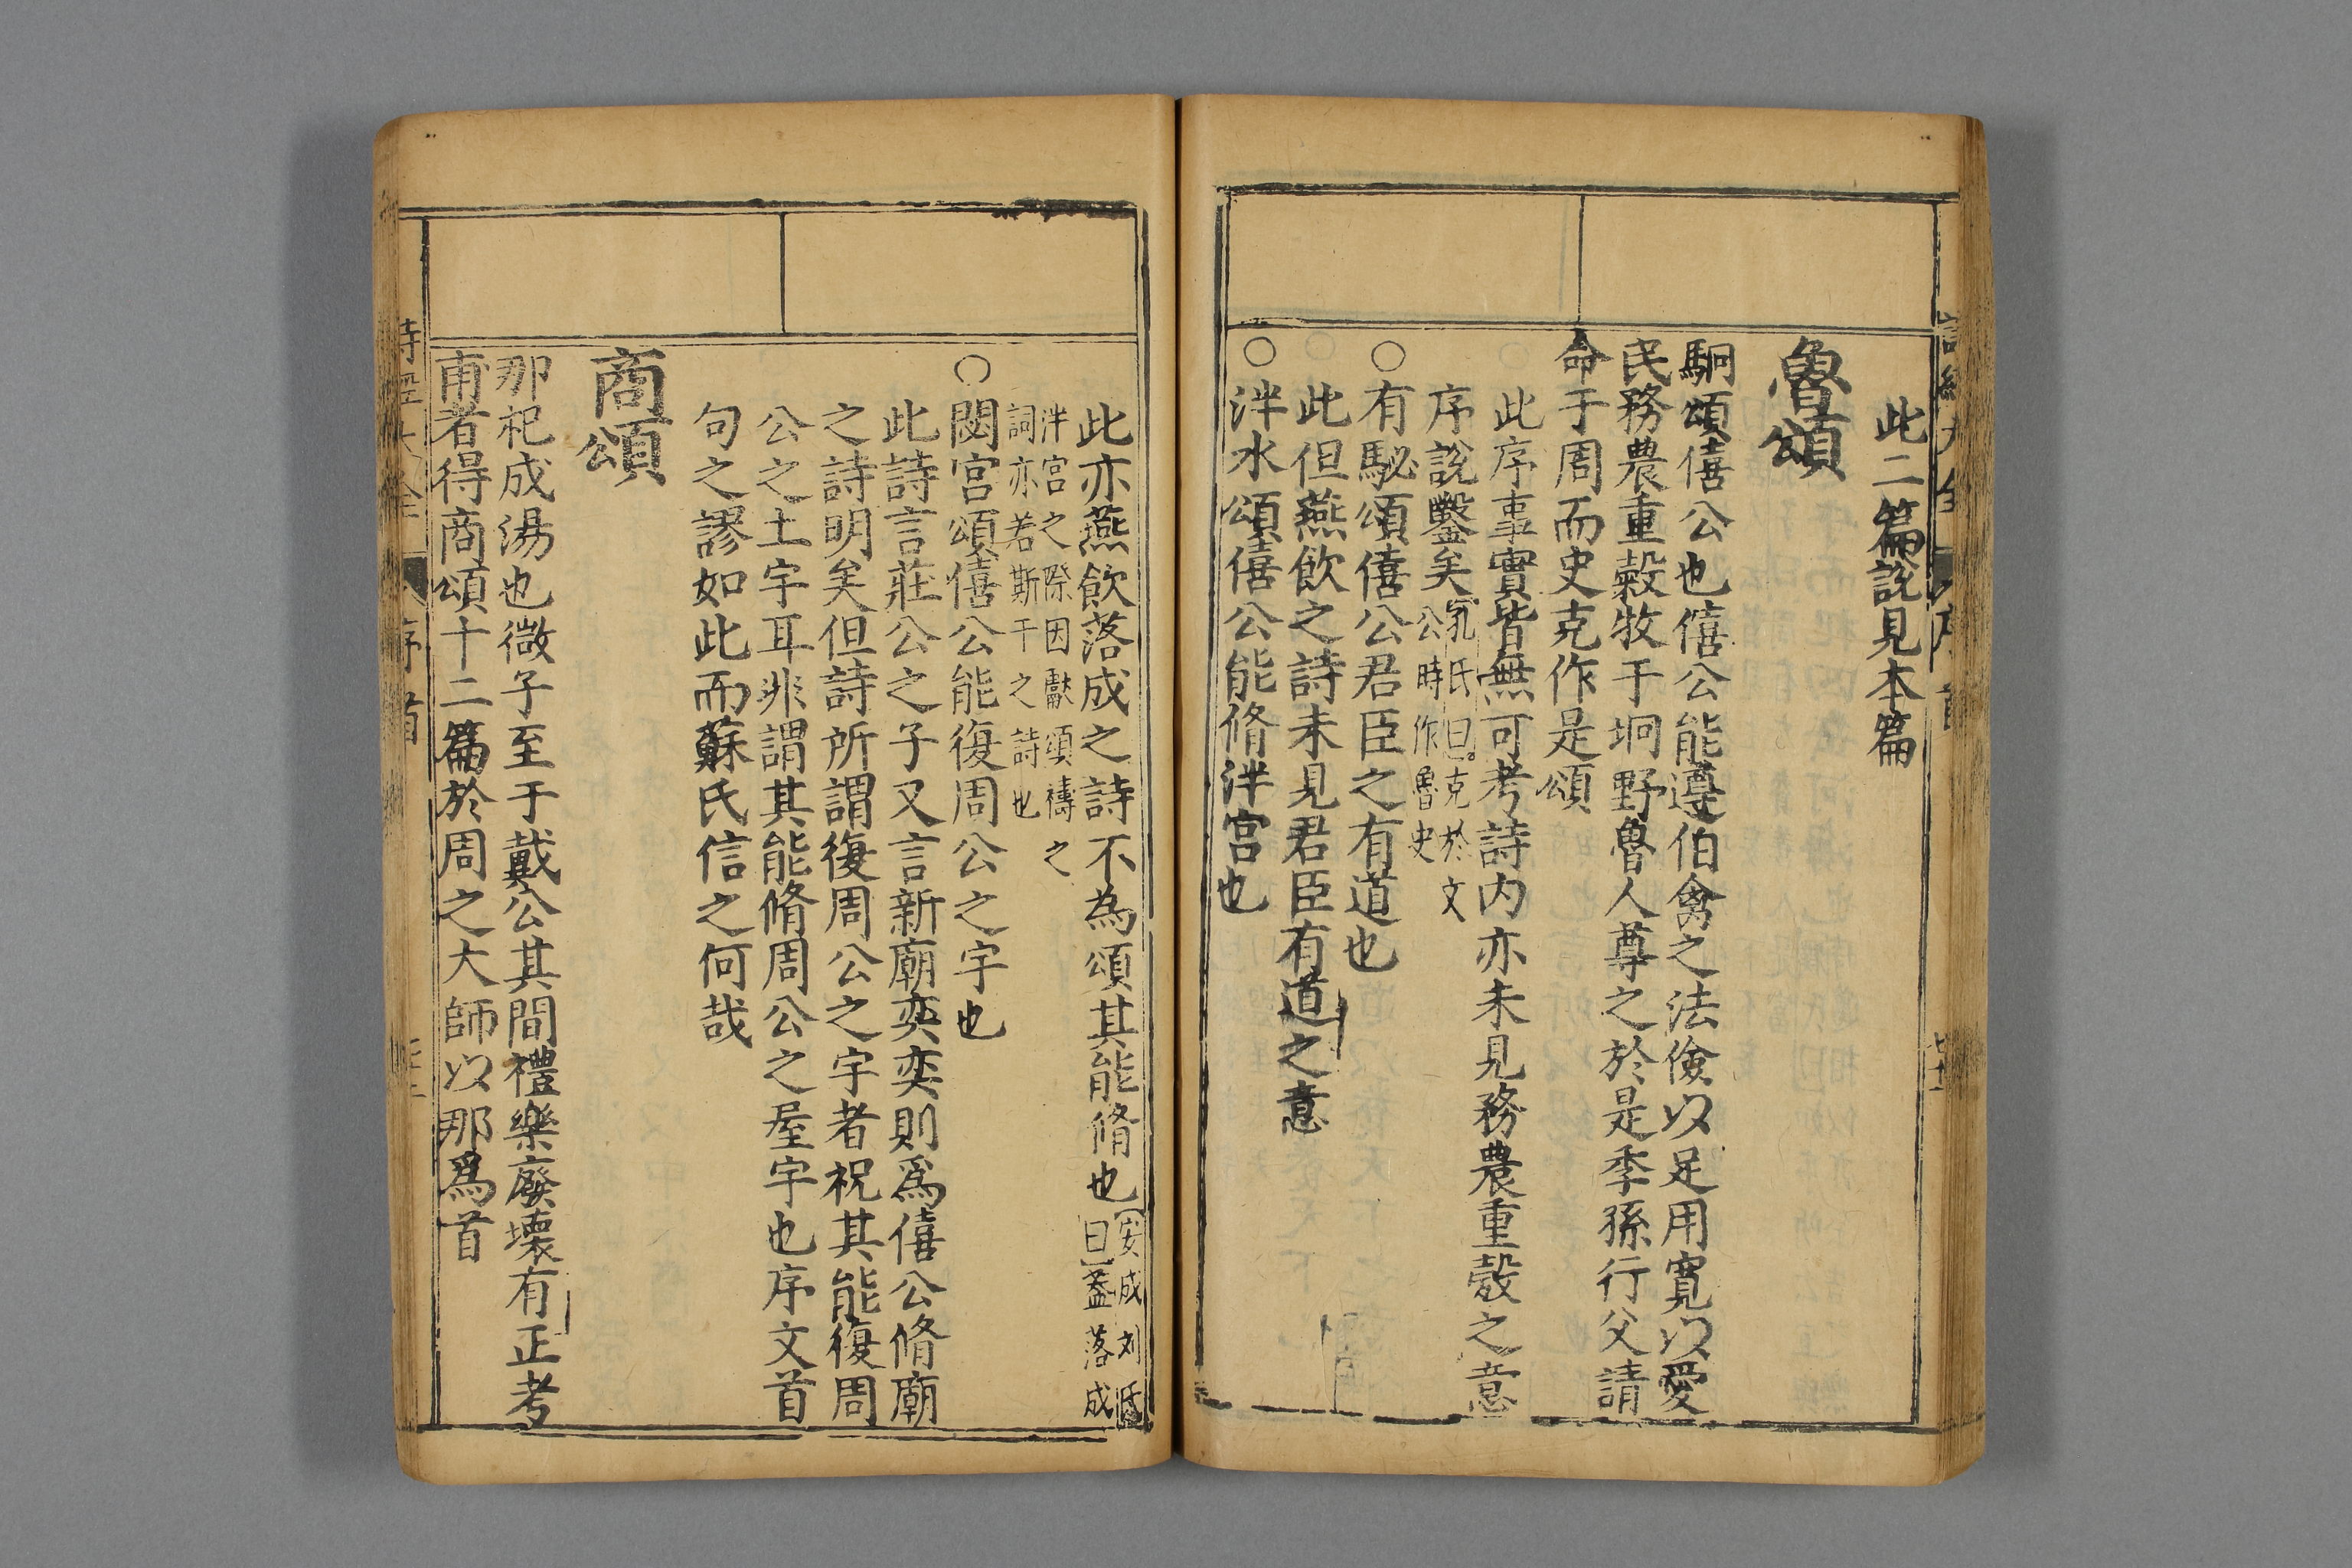 此二篇說見本篇
魯頌
駉頌僖公也僖公能遵伯禽之法儉以足用寬以愛
民務農重穀牧于坰野魯人尊之於是季孫行父請
命于周而史克作是頌
此序事實皆無可考詩内亦未見務農重穀之意
序說鑿矣
孔氏曰克於文
公時作魯史
○有駜頌僖公君臣之有道也
此但燕飲之詩未見君臣有道之意
○泮水頌僖公能脩泮宫也
此亦燕飲落成之詩不為頌其能脩也
安成刘氏
曰盖落成
泮宫之際因獻頌禱之
詞亦若斯干之詩也
○閟宫頌僖公能復周公之宇也
此詩言莊公之子又言新廟奕奕則爲僖公脩廟
之詩明矣但詩所謂復周公之宇者祝其能復周
公之土宇耳非謂其能脩周公之屋宇也序文首
句之謬如此而蘇氏信之何哉
商頌
那祀成湯也微子至于戴公其間禮樂廢壞有正考
甫者得商頌十二篇於周之大師以那爲首